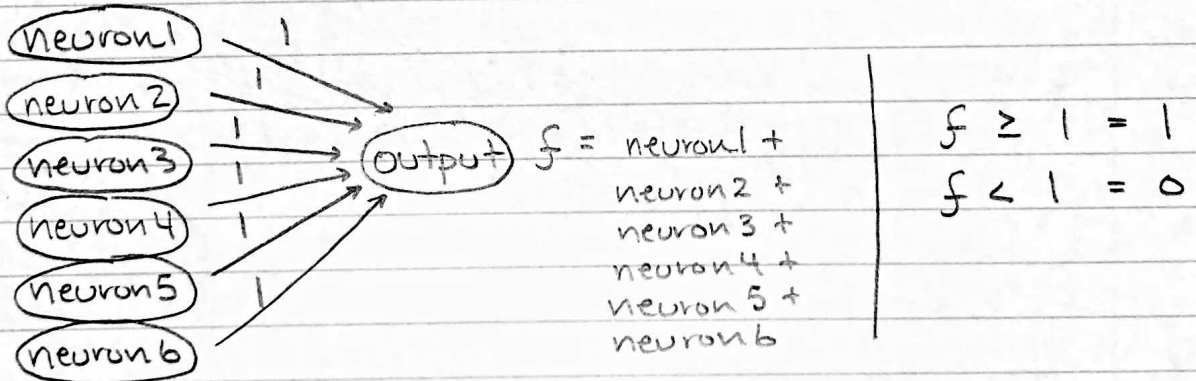 neuron1
1
neuron2
1
neuron3
1
neuron4
1
neuron5
1
neuron6
1
output
f = neuron1 +
neuron2 +
neuron3 +
neuron4 +
neuron5 +
neuron6
f ≥ 1 = 1
f < 1 = 0